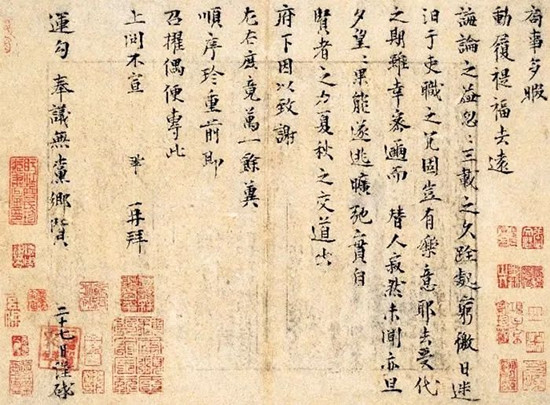 局事多暇
動履禔福去遠
誨論之益忽忽三載之久跧處窮徼日迷
汩于吏職之冗固豈有樂意耶去受代
之期雖幸密邇而 替人寂然未聞亦旦
夕望望果能遂逃曠弛實自
賢者之力夏秋之交道出
府下因以致謝
左右庶竟萬一餘冀
順序珍重前即
召擢偶便專此
上問不宣 鞏 再拜
運勾奉議無黨鄉賢 二十七日謹啟